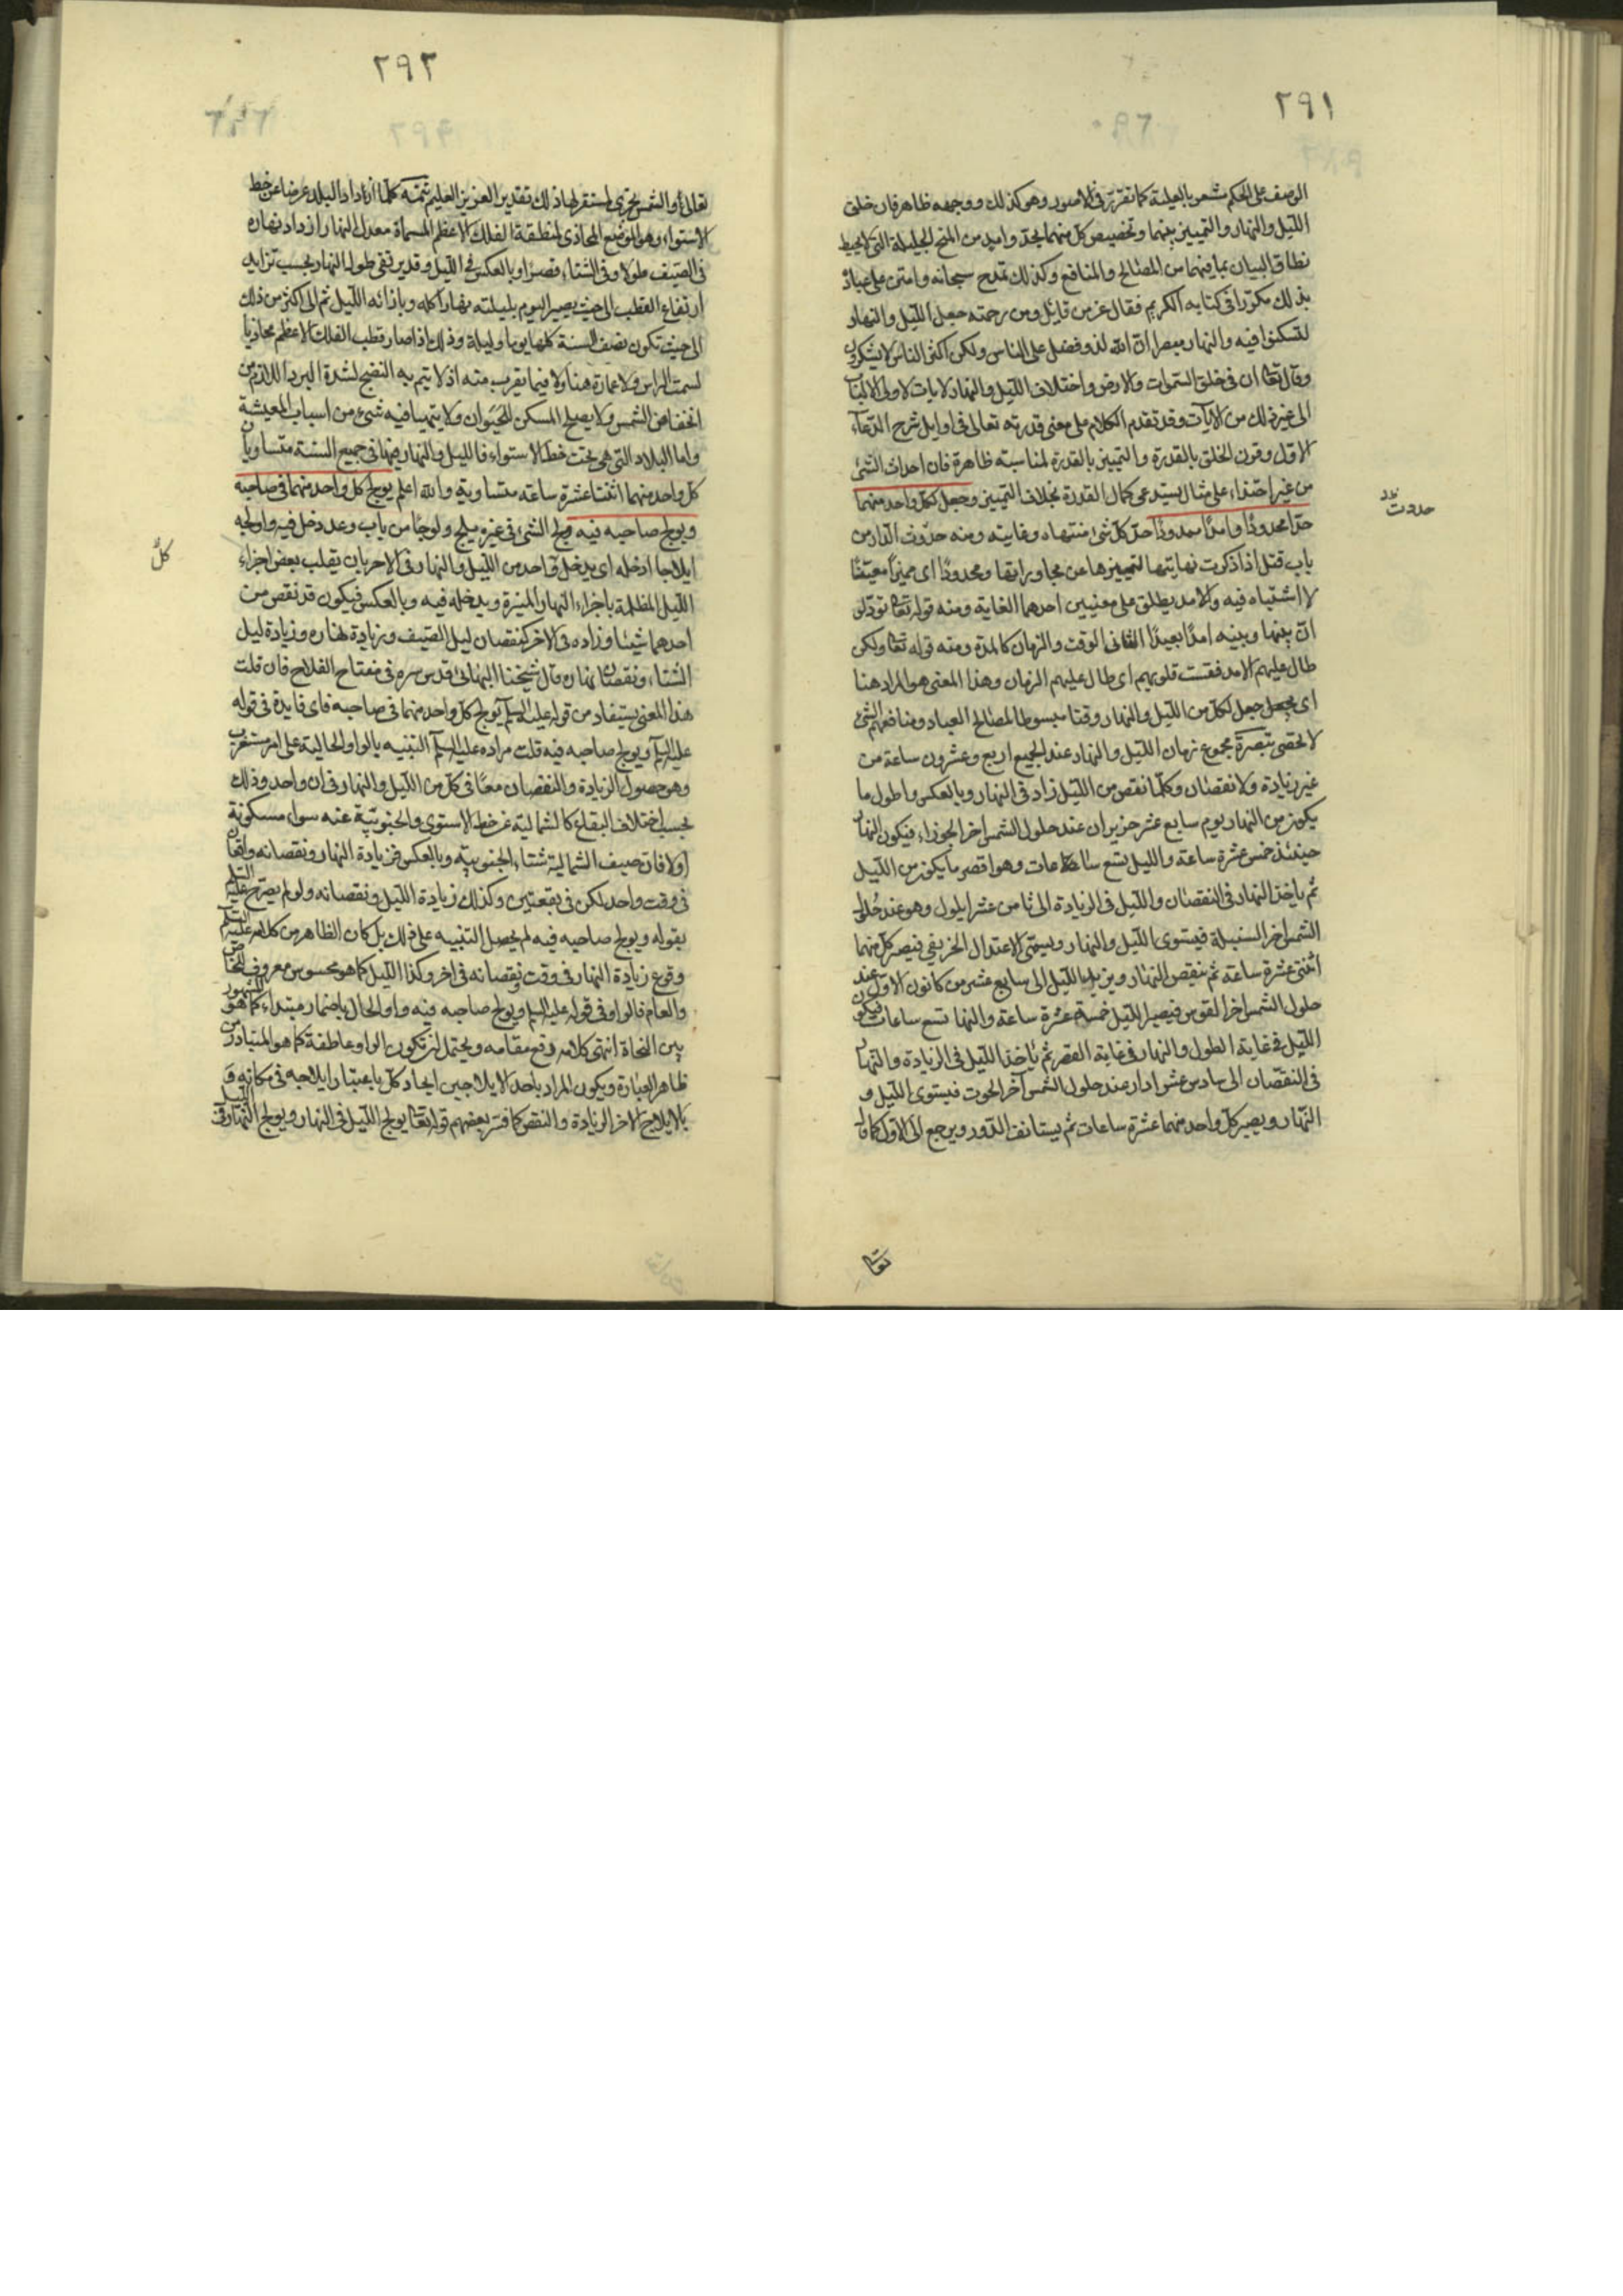 ٢٩١
الوصف على الحكم مشعر بالعلية كما تقرر في الاصول وهو كذلك ووجهه ظاهر فان خلق
الليل والنهار والتمييز بينهما وتخصيص كل منهما بحد وامد من المنح الجليلة التي لا يحيط
نطاق البيان بما فيهما من المصالح والمنافع وكذلك تمدح سبحانه وامتن على عباده
بذلك مكررا في كتابه الكريم فقال عز من قايل ومن رحمته جعل الليل والنهار
لتسكنوا فيه والنهار مبصرا ان الله لذو فضل على الناس ولكن اكثر الناس لا يشكرون
وقال تعا ان في خلق السموات والارض واختلاف الليل والنهار لايات لاولى الالباب
الى غير ذلك من الايات وقد تقدم الكلام على معنى قدرته تعالى في اوايل شرح الدعاء
الاول وقرن الخلق بالقدرة والتمييز بالقدرة لمناسبته ظاهرة فان احداث الشئ
من غير احتذاء على مثال يستدعى كمال القدرة بخلاف التمييز وجعل لكل واحد منهما
حدا محدودا وامدا ممدودا حد كل شئ منتهاه وغايته ومنه حدوت الدار من
حدوت
باب قتل اذا ذكرت نهايتها لتمييزها عن مجاوراتها ومحدودا اى مميزا معينا
لا اشتباه فيه والامد يطلق على معنيين احدهما الغاية ومنه قوله تعا تود لو
ان بينها وبينه امدا بعيدا الثانى الوقت والزمان كالمدة ومنه قوله تعا ولكن
طال عليهم الامد فقست قلوبهم اى طال عليهم الزمان وهذا المعنى هو المراد هنا
اى جعل لكل من الليل والنهار وقتا مبسوطا لمصالح العباد ومنافعهم التى
لا تحصى تبصرة مجموع زمان الليل والنهار عند الجميع اربع وعشرون ساعة من
غير زيادة ولا نقصان وكلما نقص من الليل زاد في النهار وبالعكس واطول ما
يكون من النهار يوم سابع عشر حزيران عند حلول الشمس اخر الجوزاء فيكون النهار
حينئذ خمس عشرة ساعة والليل تسع ساعات وهو اقصر ما يكون من الليل
ثم ياخذ النهار في النقصان والليل في الزيادة الى ثامن عشر ايلول وهو عند حلول
الشمس اخر السنبلة فيستوى الليل والنهار ويسمى الاعتدال الخريفي فيصير كل منهما
اثنتى عشرة ساعة ثم ينقص النهار ويزيد الليل الى سابع عشر من كانون الاول عند
حلول الشمس اخر القوس فيصير الليل خمسة عشرة ساعة والنهار تسع ساعات فيكون
الليل في غاية الطول والنهار في غاية القصر ثم ياخذ الليل في الزيادة والنهار
في النقصان الى سادس عشر ادار عند حلول الشمس آخر الحوت فيستوى الليل و
النهار ويصير كل واحد منهما عشرة ساعات ثم يستانف الدور ويرجع الى الاول كما قال
تعالى
٢٩٢
تعالى والشمس تجرى لمستقر لها ذلك تقدير العزيز العليم تتمة كلما ازداد البلد عرضا عن خط
الاستواء وهو الموضع المحاذى لمنطقة الفلك الاعظم المسماة معدل النهار ازداد نهاره
في الصيف طولا وفي الشتاء قصرا وبالعكس في الليل وقد يرتقى طول النهار بحسب تزايد
ارتفاع القطب الى حيث يصير اليوم بليلته نهارا كله وبازائه الليل ثم الى اكثر من ذلك
الى حيث تكون نصف السنة كلها يوما وليلة وذلك اذا صار قطب الفلك الاعظم محاذيا
لسمت الراس ولا عمارة هناك ولا فيما يقرب منه اذ لا يتم به النضج لشدة البرد اللازم من
انخفاض الشمس ولا يصلح المسكن للحيوان ولا يتهيا فيه شئ من اسباب المعيشة
واما البلاد التى هى تحت خط الاستواء فالليل والنهار فيها في جميع السنة متساويان
كل واحد منهما اثنتا عشرة ساعة متساوية والله اعلم يولج كل واحد منهما في صاحبه
ويولج صاحبه فيه ولج الشئ في غيره يلج ولوجا من باب وعد دخل فيه واولجه
ايلاجا ادخله اى يدخل واحد من الليل والنهار في الاخر بان يقلب بعض اجزاء
كل
الليل المظلمة باجزاء النهار المنيرة ويدخله فيه وبالعكس فيكون قد نقص من
احدهما شيئا وزاده في الاخر كنقصان ليل الصيف وزيادة نهاره وزيادة ليل
الشتاء ونقصان نهاره قال شيخنا البهائى قدس سره في مفتاح الفلاح فان قلت
هذا المعنى يستفاد من قوله عليه السلم يولج كل واحد منهما في صاحبه فاى فايدة في قوله
عليه السلم ويولج صاحبه فيه قلت مراده عليه السلم التنبيه بالواو الحالية على امر مستغرب
وهو حصول الزيادة والنقصان معا في كل من الليل والنهار في ان واحد وذلك
بحسب اختلاف البقاع كالشمالية عن خط الاستوى والجنوبية عنه سواء مسكونة
اولا فان صيف الشمالية شتاء الجنوبية وبالعكس فزيادة النهار ونقصانه واقعان
في وقت واحد لكن في بقعتين وكذلك زيادة الليل ونقصانه ولو لم يصرح عليه السلم
بقوله ويولج صاحبه فيه لم يحصل التنبيه على ذلك بل كان الظاهر من كلامه عليه السلم
وقوع زيادة النهار في وقت ونقصانه في اخر وكذا الليل كما هو محسوس معروف للخاص
والعام فالواو في قوله عليه السلم ويولج صاحبه فيه واو الحال باضمار مبتداء كما هو المشهور
بين النحاة انتهى كلامه رفع مقامه ويحتمل ان تكون الواو عاطفة كما هو المتبادر من
ظاهر العبارة ويكون المراد باحد الايلاجين ايجاد كل باعتبار ايلاجه في مكانه و
بالايلاج الاخر الزيادة والنقص كما فسر بعضهم قوله تعا يولج الليل في النهار ويولج النهار في الليل